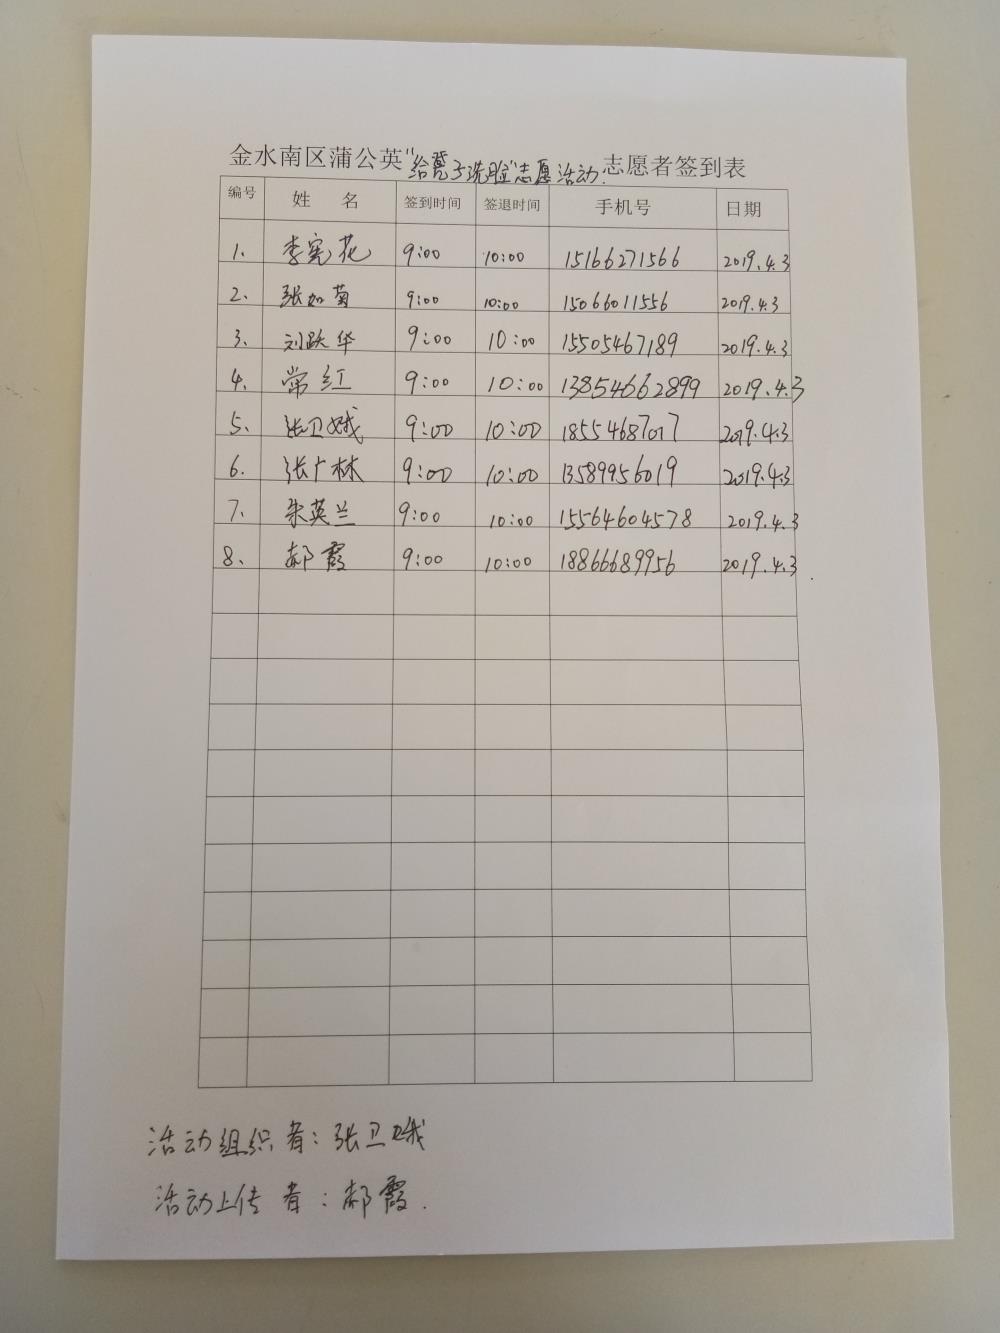 金水南区蒲公英“给凳子洗脸”志愿活动.志愿者签到表
编号 姓 名 签到时间 签退时间 手机号 日期
1. 李宪花 9:00 10:00 15166271566 2019.4.3
2. 张如菊 9:00 10:00 15066011556 2019.4.3
3. 刘跃华 9:00 10:00 15505467189 2019.4.3
4. 常红 9:00 10:00 13854662899 2019.4.3
5. 张卫娥 9:00 10:00 18554687017 2019.4.3
6. 张广林 9:00 10:00 13589956019 2019.4.3
7. 朱英兰 9:00 10:00 15564604578 2019.4.3
8. 郝霞 9:00 10:00 18866689956 2019.4.3
活动组织者:张卫娥
活动上传者:郝霞.